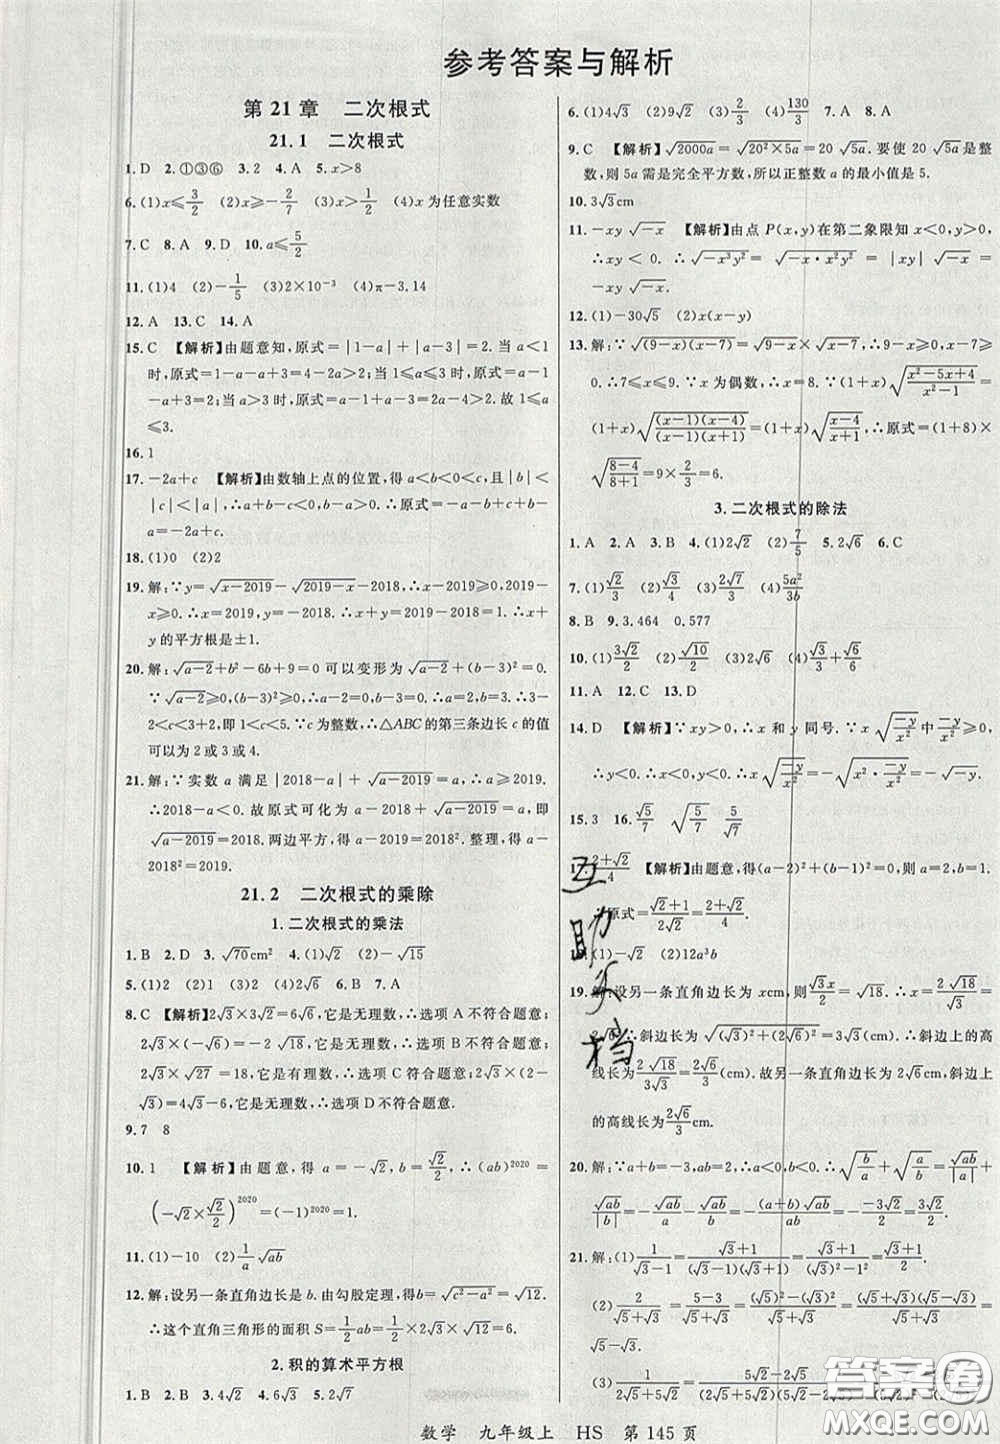 参考答案与解析
第21章 二次根式
21.1 二次根式
1. D 2. ①③⑥ 3. 2 4. A 5. x>8
6. (1)x≤3/2 (2)x≥-2/7 (3)x>1/2 (4)x为任意实数
7. C 8. A 9. D 10. a≤5/2
11. (1)4 (2)-1/5 (3)2×10⁻³ (4)π-3.14
12. A 13. C 14. A
15. C 【解析】由题意知,原式=|1-a|+|a-3|=2. 当a<1
时,原式=1-a+3-a=4-2a;当1≤a≤3时,原式=a-1
-a+3=2;当a>3时,原式=a-1+a-3=2a-4=2. 故1≤a
≤3.
16. 1
17. -2a+c 【解析】由数轴上点的位置,得a<b<0<c,且|b|<
|c|<|a|,∴a+b-c<0,b-a>0. ∴原式=-a-b+c+b-a=
-2a+c.
18. (1)0 (2)2
19. 解:∵y=√(x-2019)-√(2019-x)-2018,∴x-2019≥0,2019-
x≥0. ∴x=2019,y=-2018. ∴x+y=2019-2018=1. ∴x+
y的平方根是±1.
20. 解:√(a-2)+b²-6b+9=0可以变形为√(a-2)+(b-3)²=0.
∵√(a-2)≥0,(b-3)²≥0,∴a-2=0,b-3=0. ∴a=2,b=3. ∴3-
2<c<2+3,即1<c<5. ∵c为整数,∴△ABC的第三条边长c的值
可以为2或3或4.
21. 解:∵实数a满足|2018-a|+√(a-2019)=a,∴a≥2019.
∴2018-a<0. 故原式可化为a-2018+√(a-2019)=a,即
√(a-2019)=2018. 两边平方,得a-2019=2018². 整理,得a
-2018²=2019.
21.2 二次根式的乘除
1. 二次根式的乘法
1. B 2. D 3. √70cm² 4. (1)√2 (2)-√15
5. (1)2 (2)1 6. B 7. A
8. C 【解析】2√3×3√2=6√6,它是无理数,∴选项A不符合题意;
2√3×(-√6)=-2√18,它是无理数,∴选项B不符合题意;
2√3×√27=18,它是有理数,∴选项C符合题意;2√3×(2-
√3)=4√3-6,它是无理数,∴选项D不符合题意.
9. 7 8
10. 1 【解析】由题意,得a=-√2,b=√2/2,∴(ab)²⁰²⁰=
(-√2×√2/2)²⁰²⁰=(-1)²⁰²⁰=1.
11. (1)-10 (2)1/a √ab
12. 解:设另一条直角边长是b. 由勾股定理,得b=√(c²-a²)=√12.
∴这个直角三角形的面积S=1/2ab=1/2×2√3×√12=6.
2. 积的算术平方根
1. B 2. B 3. A 4. 6√2 5. 2√7
6. (1)4√3 (2)9√2 (3)2/3 (4)130/3 7. A 8. A
9. C 【解析】√2000a=√(20²×5a)=20√5a. 要使20√5a是整
数,则5a需是完全平方数,所以正整数a的最小值是5.
10. 3√3cm
11. -xy√-x 【解析】由点P(x,y)在第二象限知x<0,y>0,
∴xy<0. ∴√(-x³y²)=√(-x·x²y²)=|xy|√-x=
-xy√-x.
12. (1)-30√5 (2)x(x-y)
13. 解:∵√((9-x)(x-7))=√(9-x)×√(x-7),∴9-x≥0,x-7≥
0. ∴7≤x≤9. ∵x为偶数,∴x=8. ∵(1+x)√((x²-5x+4)/(x²-1))=
(1+x)√((x-1)(x-4)/((x-1)(x+1)))=(1+x)√((x-4)/(x+1)),∴原式=(1+8)×
√((8-4)/(8+1))=9×2/3=6.
3. 二次根式的除法
1. A 2. A 3. B 4. (1)2√2 (2)7/5 5. 2√6 6. C
7. (1)√2/3 (2)√3/4 (3)2√7/3 (4)5a²/3b
8. B 9. 3.464 0.577
10. (1)3√2/2 (2)√10/2 (3)2√6 (4)√3/3+√6
11. A 12. C 13. D
14. D 【解析】∵xy>0,∴x和y同号. ∵x√(-y/x²)中-y/x²≥0,
∴-y>0. ∴y<0. ∴x<0. ∴x√(-y/x²)=-√(x²·-y/x²)=-√-y.
15. 3 16. √5/7 √(5/7) 5/√7
17. (2+√2)/4 【解析】由题意,得(a-2)²+(b-1)²=0,则a=2,b=1.
∴原式=(√2+1)/(2√2)=(2+√2)/4.
18. (1)-√2 (2)12a³b
19. 解:设另一条直角边长为xcm,则√3x/2=√18. ∴x=2√18/√3=
2√6. ∴斜边长为√((√3)²+(2√6)²)=3√3(cm). ∴斜边上的高
线长为2√18/3√3=2√6/3(cm). 故另一条直角边长为2√6cm,斜边上
的高线长为2√6/3cm.
20. 解:∵a+b=-3,ab=2,∴a<0,b<0. ∴√(b/a)+√(a/b)=√ab/|a|+
√ab/|b|=-√ab/a-√ab/b=-(a+b)√ab/ab=-(-3√2)/2=3√2/2.
21. 解:(1)1/(√3-1)=(√3+1)/((√3-1)(√3+1))=(√3+1)/((√3)²-1²)=(√3+1)/2.
(2)2/(√5+√3)=2(√5-√3)/((√5+√3)(√5-√3))=√5-√3.
数学 九年级上 HS 第145页
互助文档
答案圈
MXQE.COM